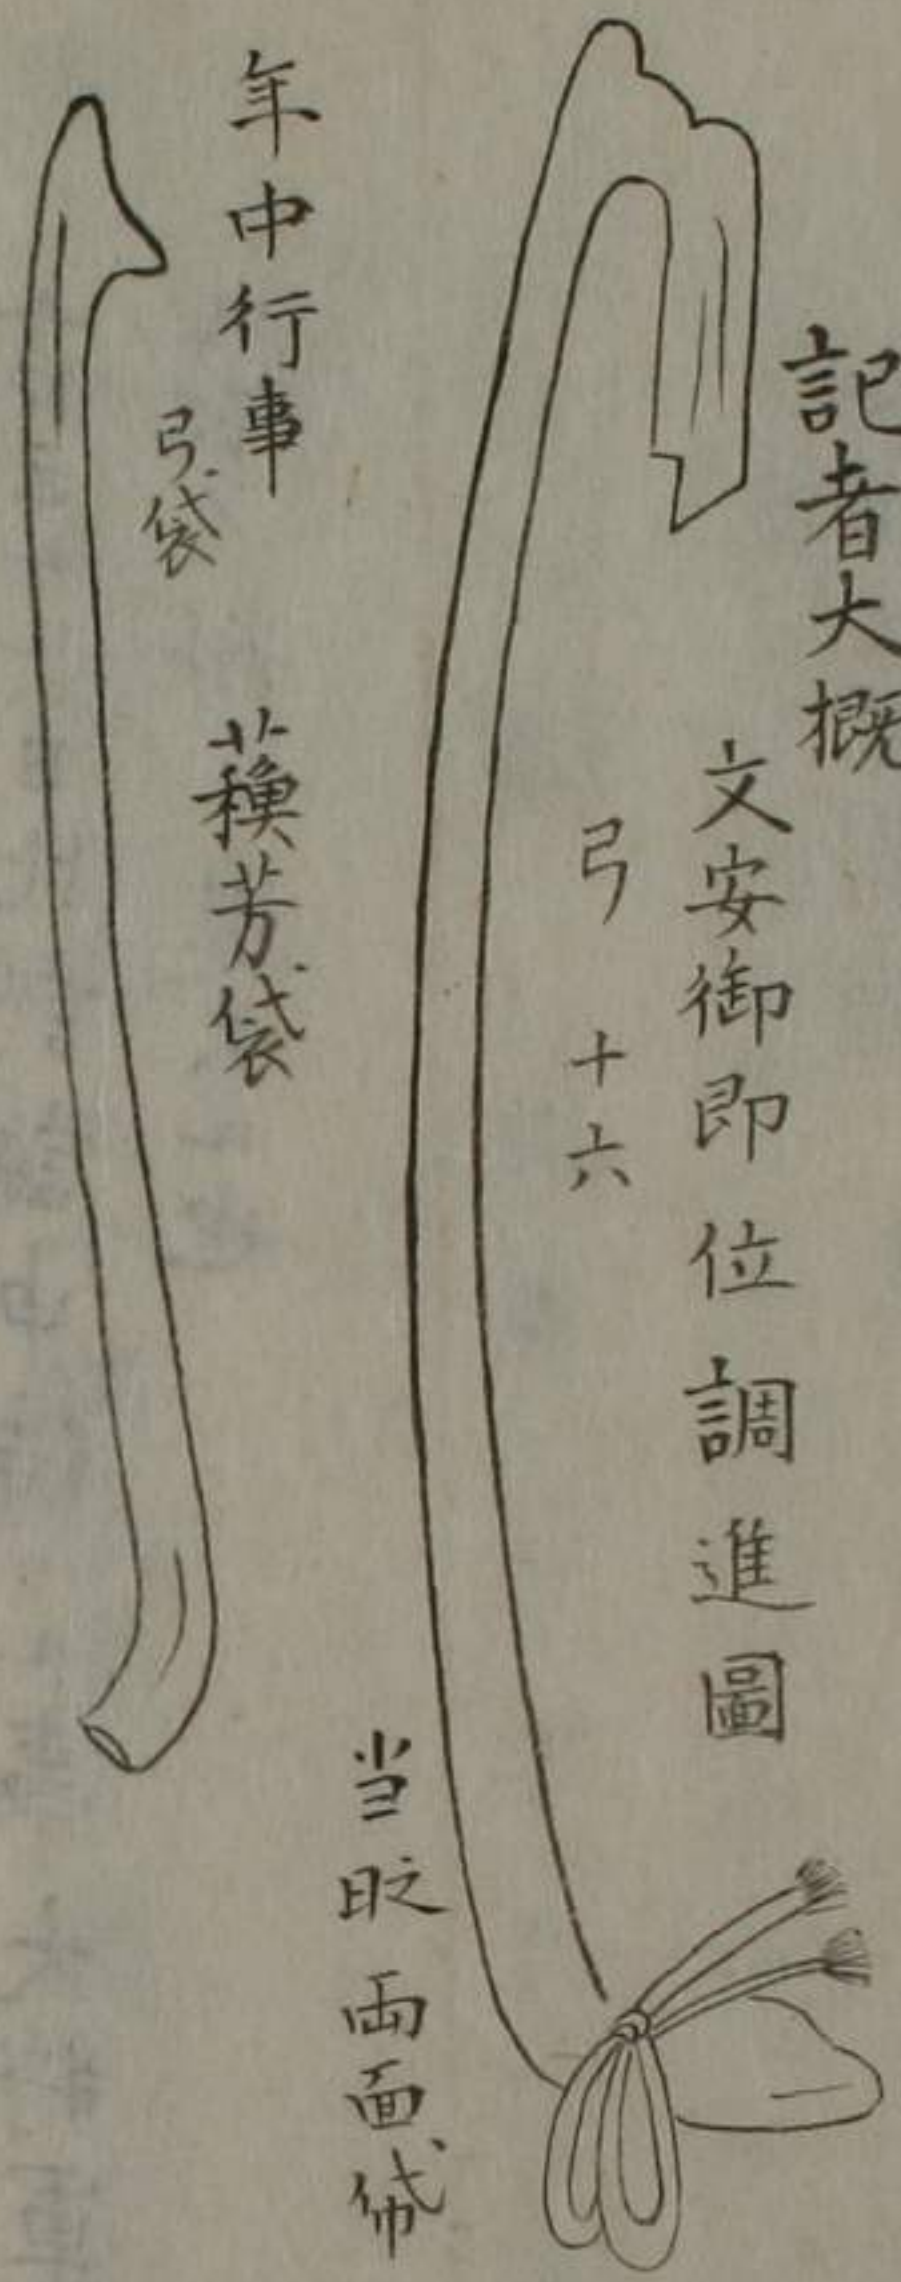 記者大概
文安御即位調進圖
弓 十六
当时両面帒
年中行事
弓袋
蘓芳袋